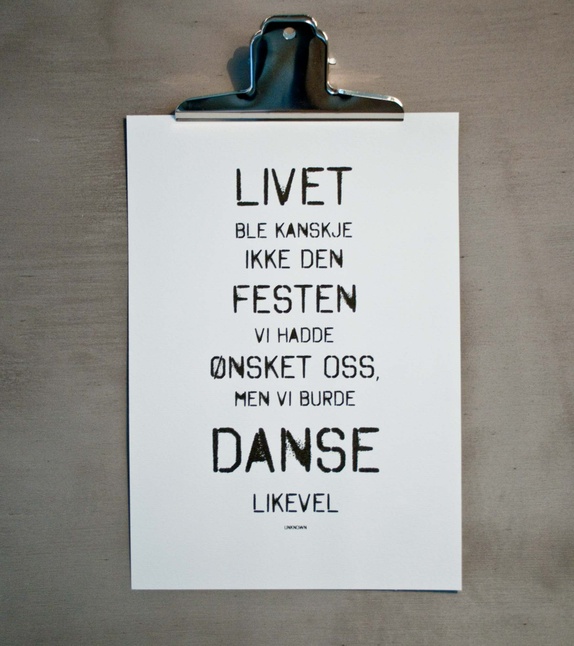 LIVET
BLE KANSKJE
IKKE DEN
FESTEN
VI HADDE
ØNSKET OSS,
MEN VI BURDE
DANSE
LIKEVEL
UNKNOWN